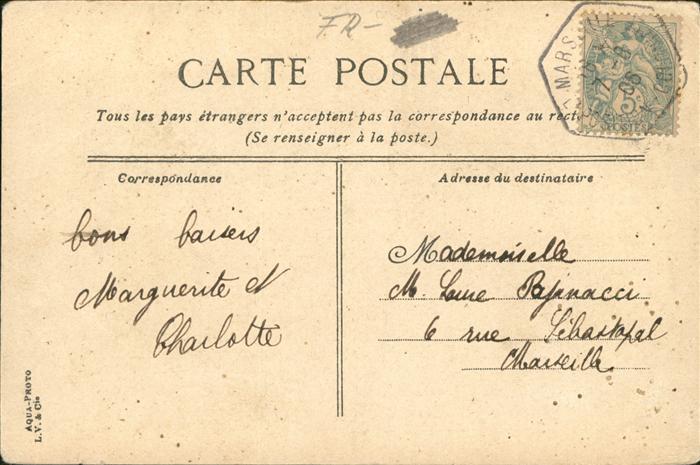 FR-
CARTE POSTALE
Tous les pays étrangers n'acceptent pas la correspondance au recto
(Se renseigner à la poste.)
Correspondance
bons baisers
Marguerite et
Charlotte
Adresse du destinataire
Mademoiselle
M. Louise
6 rue Sébastopol
Marseille
AQUA-PHOTO
L.V. & Cie
MARS
06
5
POSTES